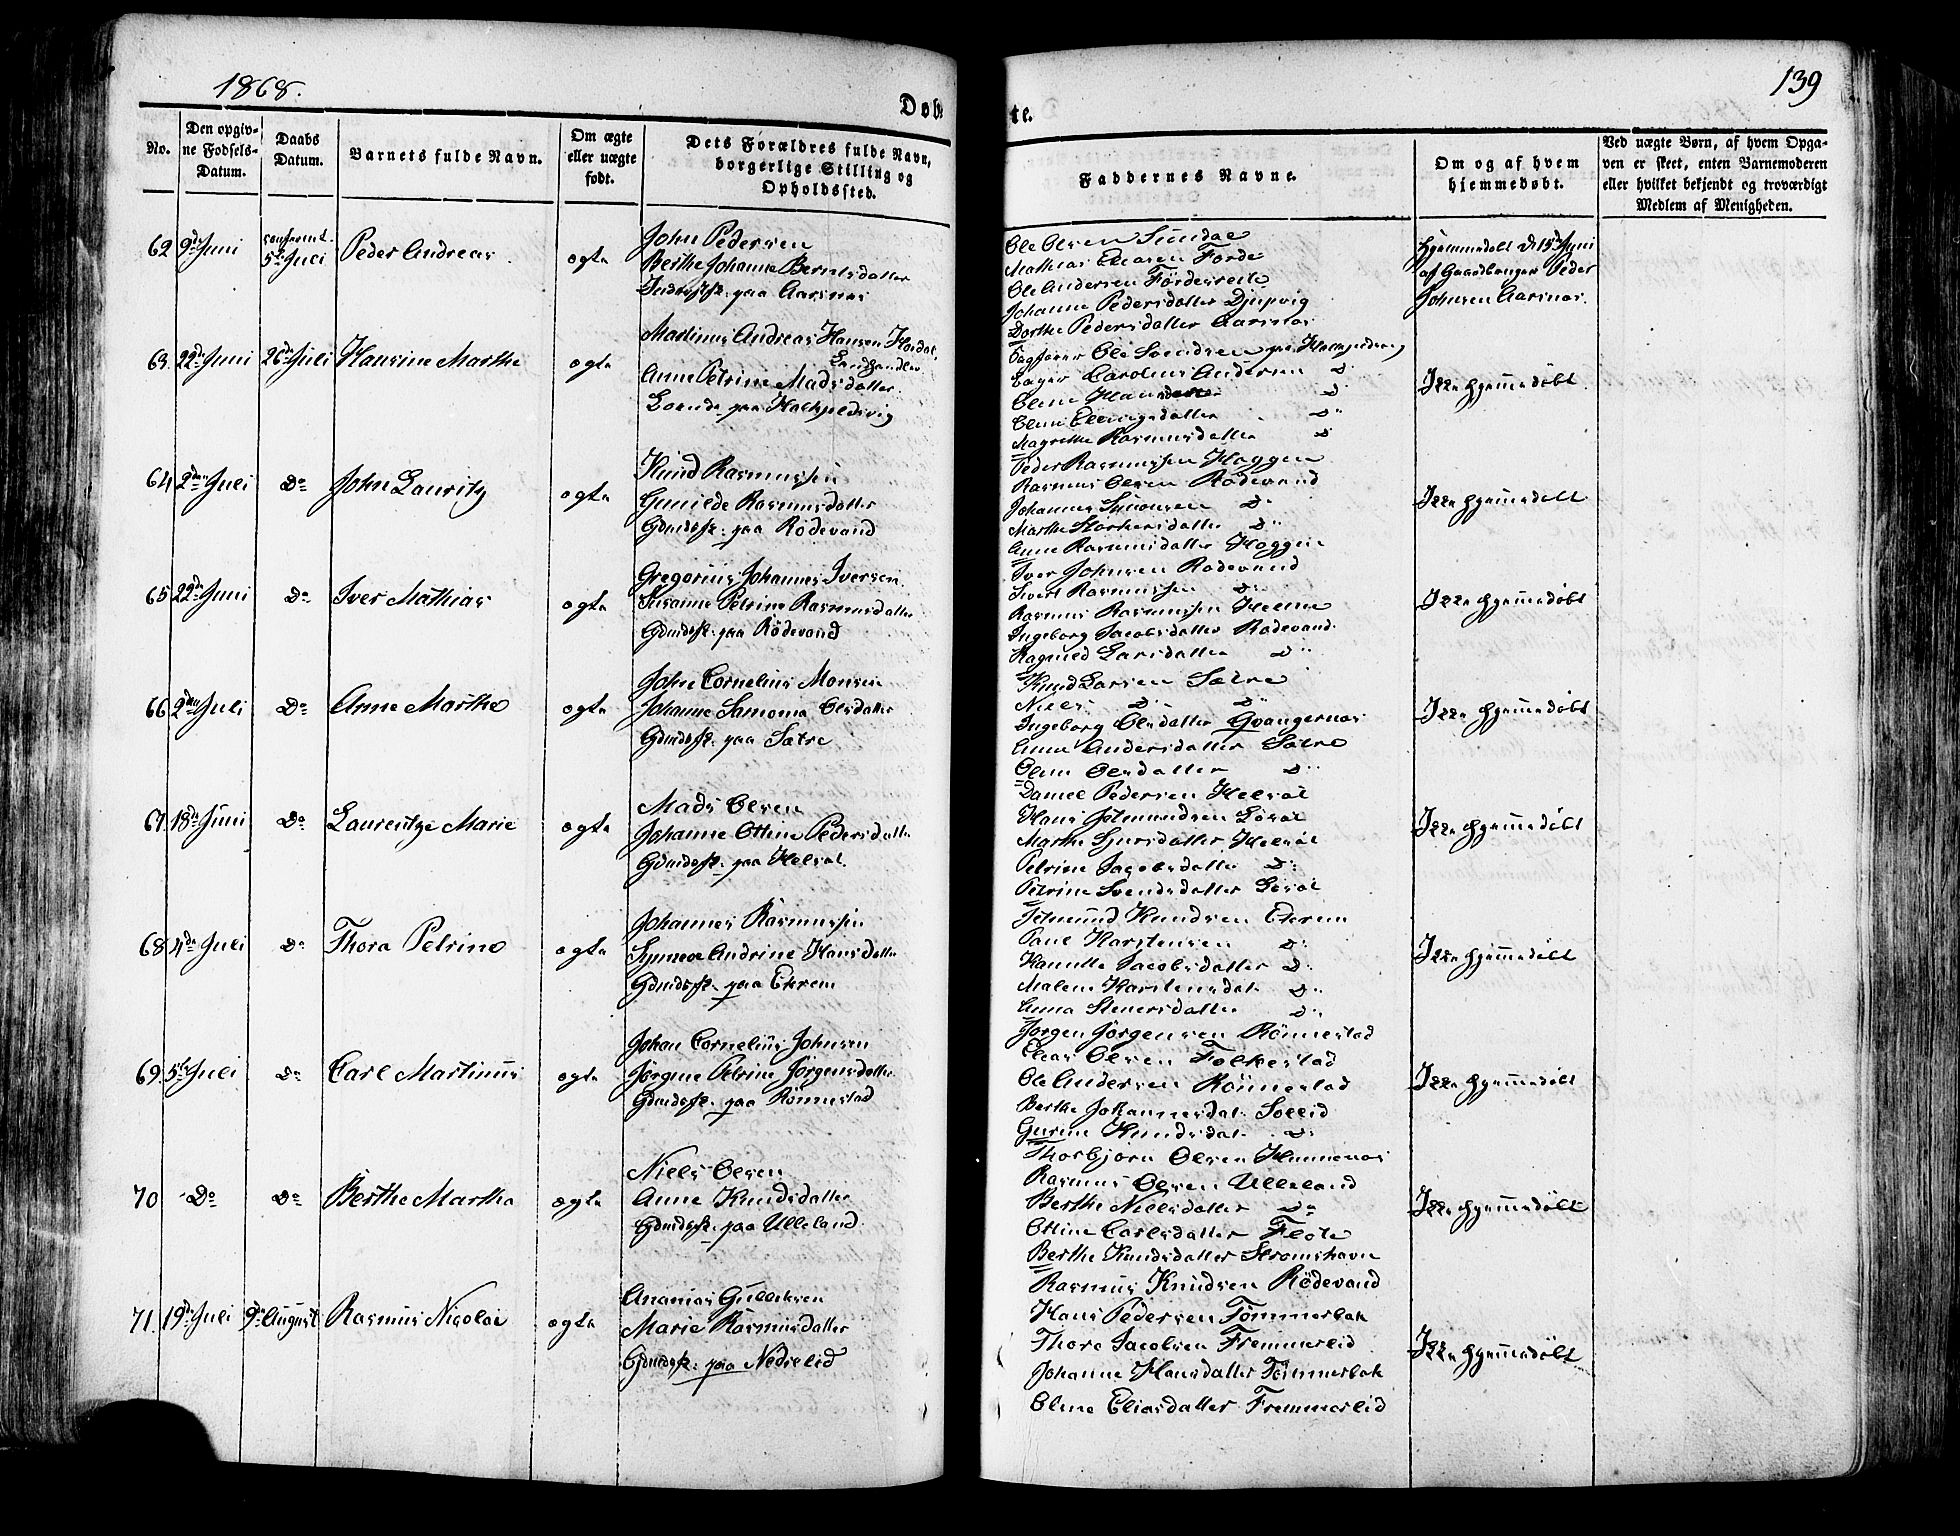 1868.
139
Døbte.
No.
Den opgivne Fødsels-Datum.
Daabs Datum.
Barnets fulde Navn.
Om ægte eller uægte født.
Dets Forældres fulde Navn, borgerlige Stilling og Opholdssted.
Faddernes Navne.
Om og af hvem hjemmedøbt.
Ved uægte Børn, af hvem Opgaven er skeet, enten Barnemoderen eller hvilket bekjendt og troværdigt Medlem af Menigheden.
62 9de Juni 5te Juli Peder Andreas ægte
John Pedersen
Berthe Johanne Berntsdatter
paa Aarsnæs
Ole Olsen Sundal
Mathias Eliasen Förde
Ole Andersen Fördesreite
Johanne Pedersdatter Djupvig
Dorthe Pedersdatter Aarsnæs
Hjemmedøbt d 15de Juni
af Gaardbruger Peder
Johnsen Aarsnæs.
63. 22de Juni 26de Juli Hansine Marthe ægte
Martinus Andreas Hansen
Landhandler
Anne Petrine Madsdatter
paa
Ole Svendsen paa
Carolus Andersen Do
Oline Hansdatter Do
Oline Ellingsdatter Do
Magrethe Rasmusdatter Do
Ikke hjemmedøbt.
64 2den Juli Do John Lauritz ægte
Knud Rasmussen
Gunilde Rasmusdatter
Gdmdsfk. paa Rödevand
Peder Rasmussen Haggen
Rasmus Olsen Rödevand
Johannes Simonsen Do
Marthe Do
Anne Rasmusdatter Haggen
Ikke hjemmedøbt
65 22de Juni Do Iver Mathias ægte
Gregorius Johannes Iversen
Susanne Petrine Rasmusdatter
Gdmdsfk. paa Rödevand
Iver Johnsen Rödevand
Sivert Rasmussen Do
Rasmus Rasmussen Helme
Ingeborg Jacobsdatter Rödevand
Ragnild Larsdatter Do
Ikke hjemmedøbt
66 2den Juli Do Anne Marthe ægte
John Cornelius Monsen
Johanne Samona Olsdatter
Gdmdsfk. paa Sætre
Knud Larsen Sætre
Niels Do Do
Ingeborg Olsdatter Gvangernæs
Anne Andersdatter Sætre
Oline Olsdatter Do
Ikke hjemmedøbt
67 18de Juni Do Laurentze Marie ægte
Mads Olsen
Johanne Ottine Pedersdatter
Gdmdsfk. paa Helsæt
Daniel Pedersen Helsæt
Hans Jetmundsen Løsæt
Marthe Sjursdatter Helsæt
Petrine Jacobsdatter Do
Petrine Svendsdatter Løsæt
Ikke hjemmedøbt
68 4de Juli Do Thora Petrine ægte
Johannes Rasmussen
Synneve Andrine Hansdatter
Gdmdsfk. paa Ekrem
Jetmund Knudsen Ekrem
Paul Karstensen Do
Hanette Jacobsdatter Do
Malene Karstensdat. Do
Anna Steners­datter Do
Ikke hjemmedøbt
69. 5te Juli Do Carl Martinus ægte
Johan Cornelius Johnsen
Jörgine Petrine Jörgensdatter
Gdmdsfk. paa Rönnestad
Jörgen Jörgensen Rönnestad
Elias Olsen Folkestad
Ole Andersen Rönnestad
Berthe Johannesdat. Sollid
Gurine Knudsdat. Do
Ikke hjemmedøbt
70 Do Do Berthe Martha ægte
Niels Olsen
Anne Knudsdatter
Gdmdsfk. paa Ulleland
Thorbjörn Olsen Hunnenæs
Rasmus Olsen Ulleland
Berthe Nielsdatter Do
Ottine Carlsdatter Flote
Berthe Knudsdatter Strömshavn
Ikke hjemmedøbt
71. 19de Juli 9de August Rasmus Nicolai ægte
Ananias Gulliksen
Marie Rasmusdatter
Gdmdsfk. paa Nedrelid
Rasmus Knudsen Rödevand
Hans Pedersen Tömmerbak
Thore Jacobsen Fremmerlid
Johanne Hansdatter Tömmerbak
Oline Eliasdatter Fremmerlid
Ikke hjemmedøbt